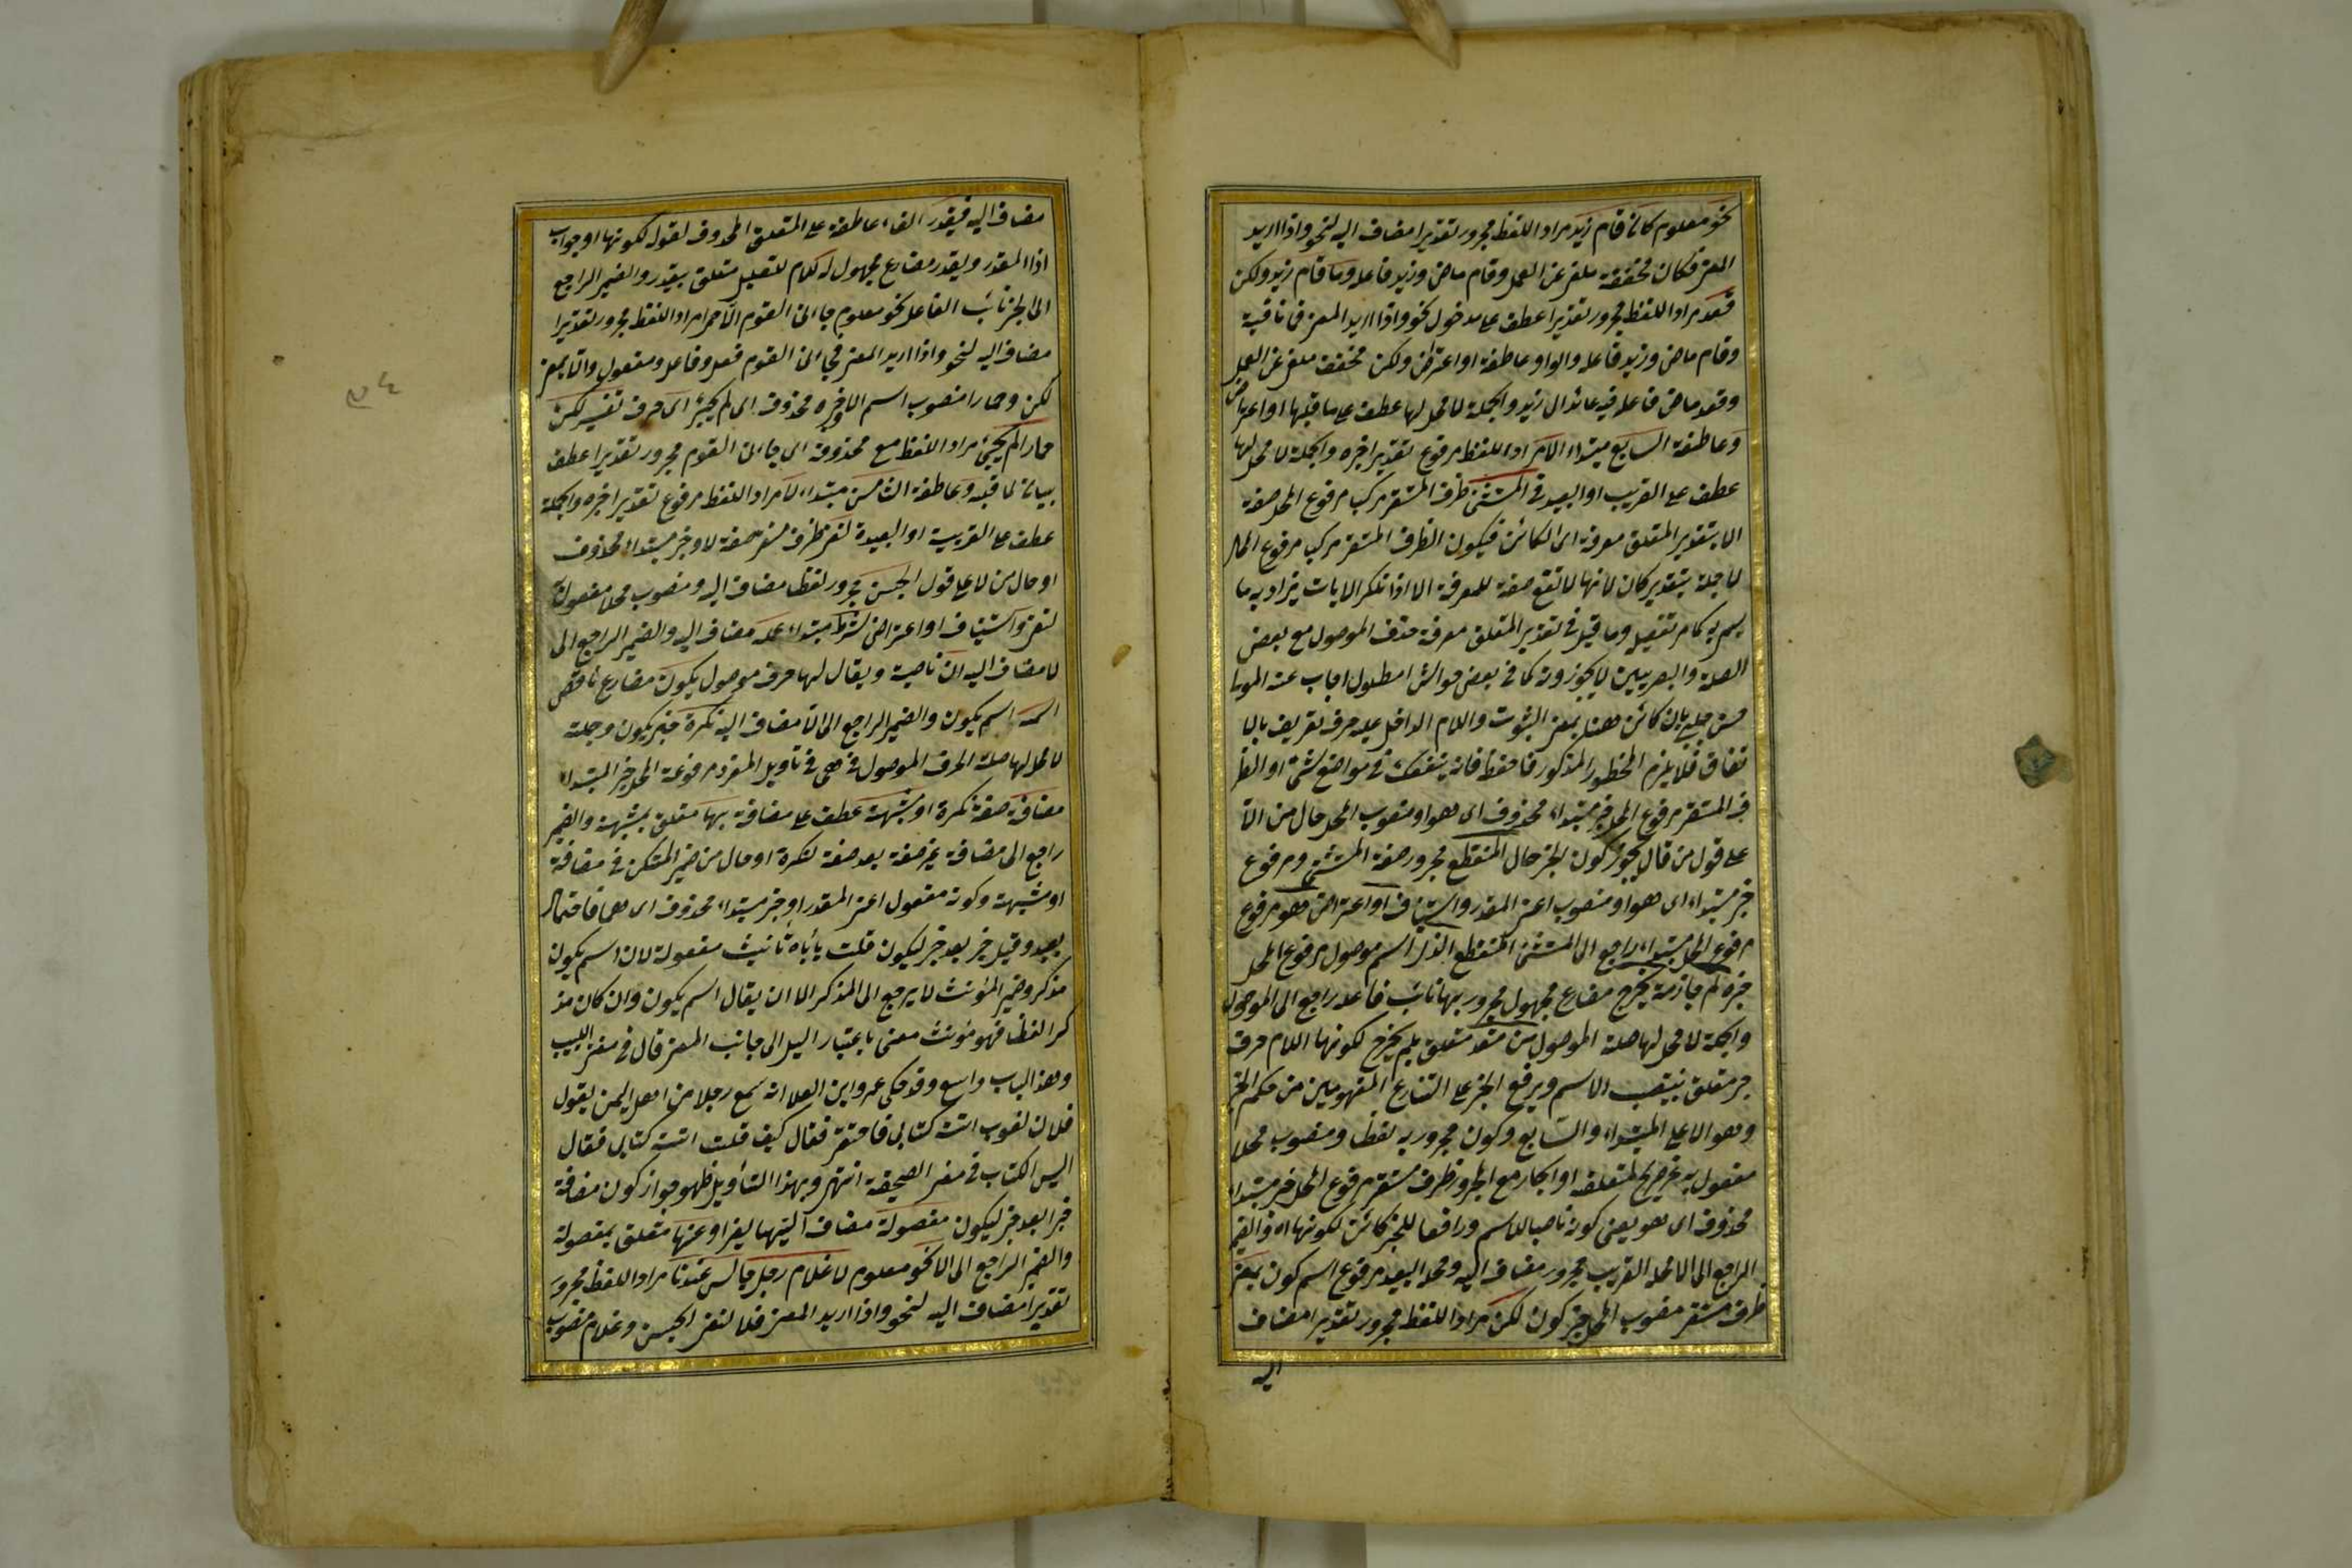 نحو معلوم كان قام زيد مراد اللفظ مجرور تقديرا مضاف اليه لنحو واذا اريد
المعنى فكان مخففة ملغى عن العمل وقام ماض وزيد فاعله وما قام زيد ولكن
قعد مراد اللفظ مجرور تقديرا عطف على مدخول نحو واذا اريد المعنى فما نافية
وقام ماض وزيد فاعله والواو عاطفة او اعتراض ولكن مخفف ملغى عن العمل
وقعد ماض فاعله فيه عائد الى زيد والجملة لا محل لها عطف على ما قبلها او اعتراض
وعاطفة السابع مبتداء الا مراد اللفظ مرفوع تقديرا خبره والجملة لا محل لها
عطف على القريب او البعيد في المستثنى ظرف المستقر مركب مرفوع المحل صفة
الا بتقدير المتعلق معرفة اى الكائن فيكون الظرف المستقر مركب مرفوع المحل
لا جملة بتقدير كان لانها لا تقع صفة للمعرفة الا اذا نكر الا بان يراد به ما
يسمى به كما مر تفصيل وما قيل في تقدير المتعلق معرفة حذف الموصول مع بعض
الصلة والبصريين لا يجوزونه كما في بعض حواشى المطول اجاب عنه المولى
حسن چلبى بان كائن هنا بمعنى الثبوت واللام الداخل عليه حرف تعريف بالا
تفاق فلا يلزم المحظور المذكور فاحفظ فانه ينفعك في مواضع شتى او الظر
ف المستقر مرفوع المحل خبر مبتداء محذوف اى هو او منصوب المحل حال من الا
على قول من قال يجوز كون الخبر حال المنقطع مجرور صفة المستثنى ومرفوع
خبر مبتداء اى هو او منصوب اعنى المقدر واستيناف او اعتراض وهو مرفوع
مرفوع المحل مبتداء راجع الى المستثنى المنقطع الذى اسم موصول مرفوع المحل
خبره لم جازمة يخرج مضارع مجهول مجرور بها نائب فاعله راجع الى الموصول
والجملة لا محل لها صلة الموصول من متعدد متعلق بلم يخرج لكونها اللام حرف
جر متعلق بينصب الاسم ويرفع الخبر على التنازع المفهومين من حكم الخبر
وهو الا على المبتداء والسابع وكون مجرور به لفظا ومنصوب محلا
مفعول به غير صريح لمتعلقه او الجار مع المجرور ظرف مستقر مرفوع المحل خبر مبتداء
محذوف اى هو يعنى كونه ناصبا للاسم ورافعا للخبر كائن لكونها اه والضمير
الراجع الى الا محله القريب مجرور مضاف اليه ومحله البعيد مرفوع اسم كون بمعنى
ظرف مستقر منصوب المحل خبر كون لكن مراد اللفظ مجرور تقديرا مضاف
اليه
مضاف اليه فيقدر الفاء عاطفة على المتعلق المحذوف لقوله لكونها او جواب
اذا المقدر ويقدر مضارع مجهول له كلام للتعليل متعلق بيقدر والضمير الراجع
الى الخبر نائب الفاعل نحو معلوم جاءنى القوم الا حمرا مراد اللفظ مجرور تقديرا
مضاف اليه لنحو واذا اريد المعنى فجاءنى القوم فعل وفاعل ومفعول والا بمعنى
لكن وحمارا منصوب اسم الا خبره محذوف اى لم يجئ اى حرف تفسير لكن
حمارا لم يجئ مراد اللفظ مع محذوفة اى جاءنى القوم مجرور تقديرا عطف
بيان لما قبله وعاطفة الثامن مبتداء لا مراد اللفظ مرفوع تقديرا خبره والجملة
عطف على القريبة او البعيدة لنفى ظرف مستقر صفة لا و خبر مبتداء محذوف
او حال من لا على قول الجنس مجرور لفظا مضاف اليه ومنصوب محلا مفعول
لنفى واستيناف او اعتراض شرط مبتداء عمله مضاف اليه والضمير الراجع الى
لا مضاف اليه ان ناصبة ويقال لها حرف موصول يكون مضارع ناقص
اسمه اسم يكون والضمير الراجع الى لا مضاف اليه نكرة خبر يكون وجملة
لا محل لها صلة الحرف الموصول فهى في تأويل المفرد مرفوعة المحل خبر المبتداء
مضافة صفة نكرة او مشبهة عطف على مضافة بها متعلق بمشبهة والضمير
راجع الى مضافة غير صفة بعد صفة لنكرة او حال من ضمير المتكن في مضافة
او مشبهة وكونه مفعول اعنى المقدر او خبر مبتداء محذوف اى هما فاحتمال
بعيد وقيل خبر بعد خبر ليكون قلت يأباه تأنيث مفعولة لان اسم يكون
مذكر وضمير المؤنث لا يرجع الى المذكر الا ان يقال اسم يكون وان كان مذ
كرا لفظا فهو مؤنث معنى باعتبار الميل الى جانب المعنى قال في مغنى اللبيب
وهذا الباب واسع وقد حكى عمرو ابن العلا انه سمع رجلا من اهل اليمن يقول
فلان لغوب اتته كتابى فاحتقر فقال كيف قلت اتته كتابى فقال
اليس الكتاب في معنى الصحيفة انتهى وبهذا التأويل ظهر جواز كون مضافة
خبرا بعد خبر ليكون مفصولة مضاف اليتها يفرا وعنها متعلق بمفصولة
والضمير الراجع الى لا نحو معلوم لا غلام رجل جالس عندنا مراد اللفظ مجرور
تقديرا مضاف اليه لنحو واذا اريد المعنى فلا لنفى الجنس وغلام منصوب